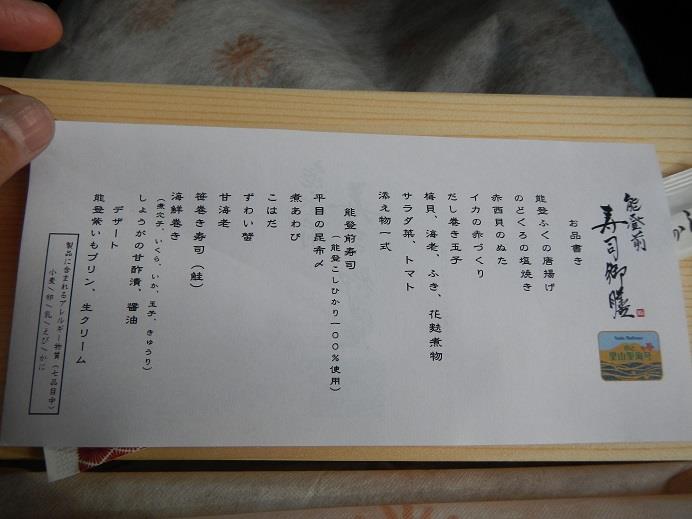 能登前
寿司御膳
お品書き
能登ふくの唐揚げ
のどくろの塩焼き
赤西貝のぬた
イカの赤づくり
だし巻き玉子
梅貝、海老、ふき、花麩煮物
サラダ菜、トマト
添え物一式
能登前寿司
（能登こしひかり一〇〇％使用）
平目の昆布〆
煮あわび
こはだ
ずわい蟹
甘海老
笹巻き寿司（鮭）
海鮮巻き
（煮穴子、いくら、いか、玉子、きゅうり）
しょうがの甘酢漬、醤油
デザート
能登紫いもプリン、生クリーム
製品に含まれるアレルギー物質（七品目中）
小麦/卵/乳/えび/かに
里山里海号